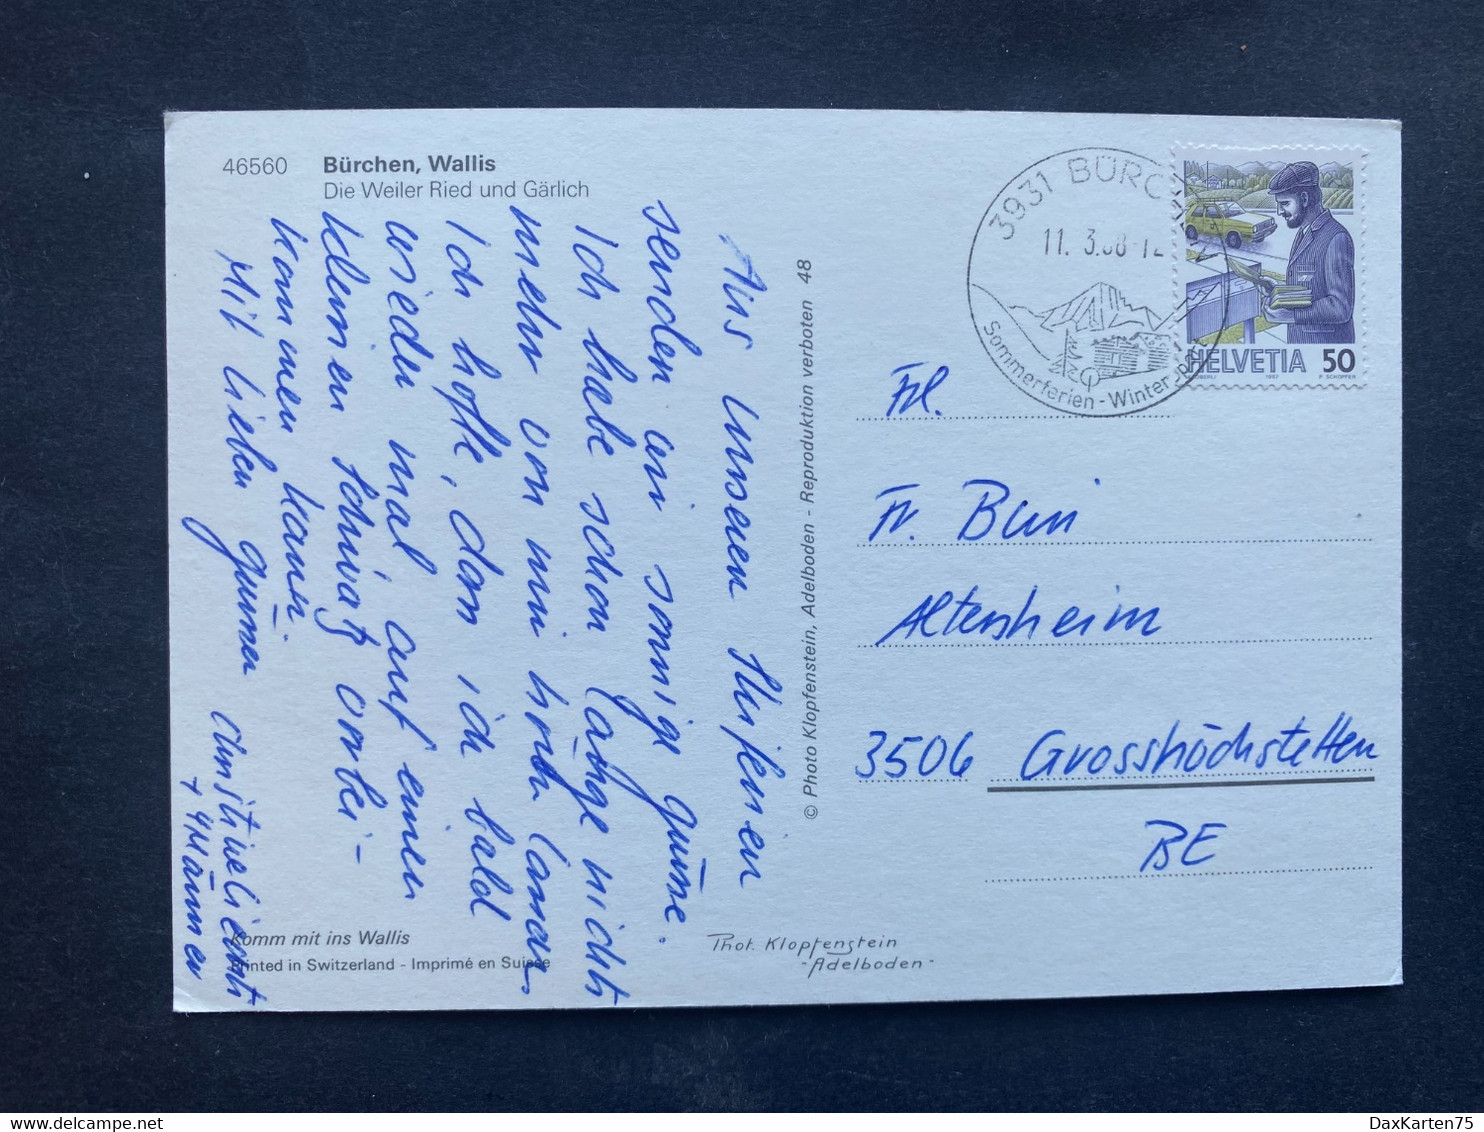 46560 Bürchen, Wallis
Die Weiler Ried und Gärlich
Aus unseren Skiferien
senden wir sonnige Grüsse.
Ich habe schon lange nichts
mehr von mir hören lassen
Ich hoffe, dass ich bald
wieder mal auf einen
kleinen Schwatz vorbei-
kommen kann.
Mit lieben Grüssen
+ 4 Männer
Komm mit ins Wallis
Printed in Switzerland - Imprimé en Suisse
© Photo Klopfenstein, Adelboden - Reproduktion verboten 48
Phot. Klopfenstein
-Adelboden-
3931 BÜRCHEN
11. 3.88-12
Sommerferien - Winter
HELVETIA 50
1987
Frl.
Fr.
Altersheim
3506 Grosshöchstetten
BE
DaxKarten75
delcampe.net